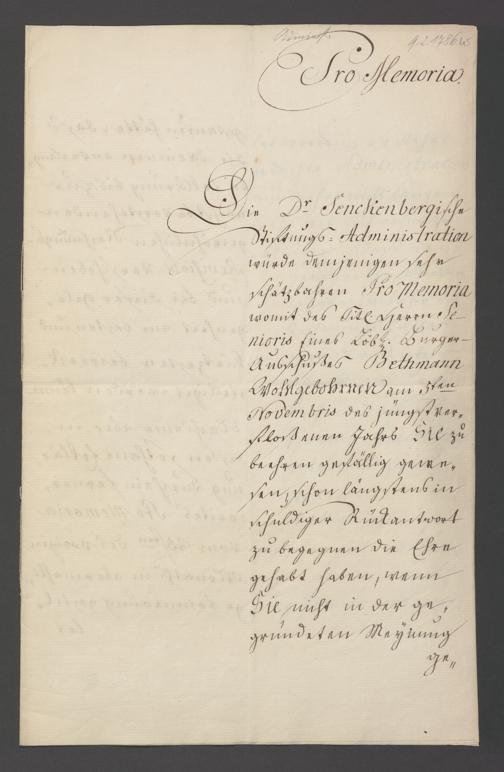 9.2.1786
Pro Memoria.
Die Dr. Senckenbergische
Stiftungs=Administration
würde demjenigen sehr
schätzbahren Pro Memoria
womit des Titl. Herrn Se-
nioris Eines Löbl. Burger-
Ausschußes Bethmann
Wohlgebohrnen am 5ten
Novembris des jüngstver-
floßenen Jahrs Sie zu
beehren gefällig gewe-
sen, schon längstens in
schuldiger Rückantwort
zu begegnen die Ehre
gehabt haben, wenn
Sie nicht in der ge-
gründeten Meynung
ge„